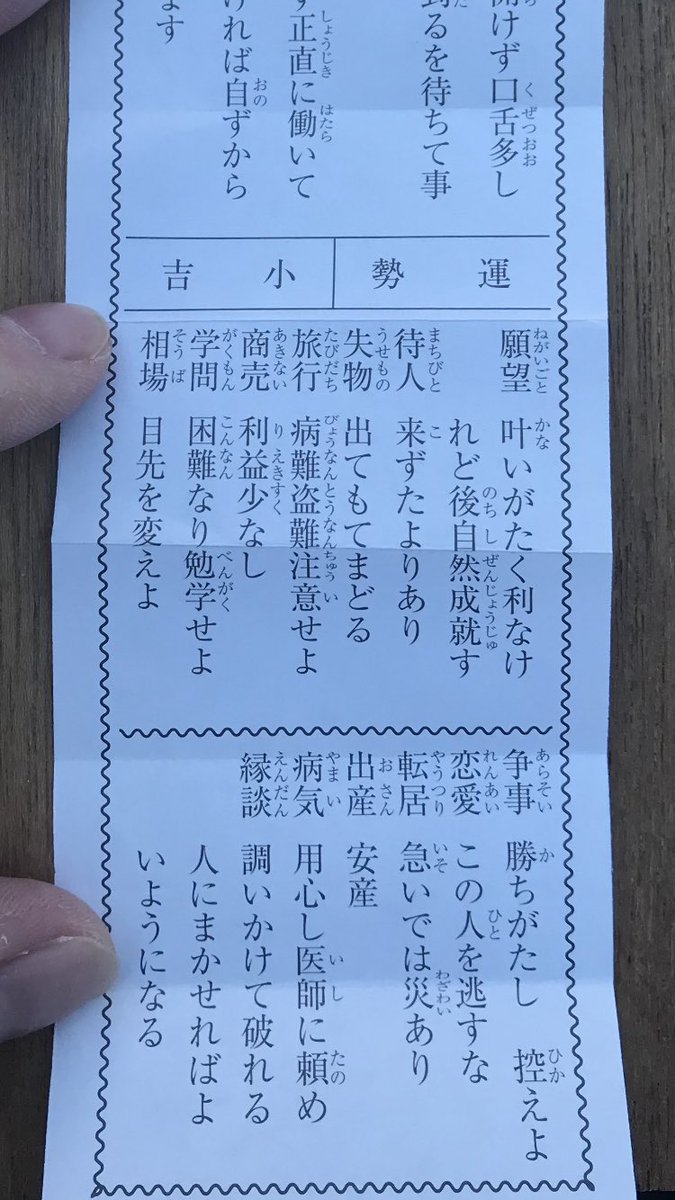 開けず口舌多し
到るを待ちて事
ず正直に働いて
ければ自ずから
ます
運勢 小吉
願望 叶いがたく利なけ
れど後自然成就す
待人 来ずたよりあり
失物 出てもてまどる
旅行 病難盗難注意せよ
商売 利益少なし
学問 困難なり勉学せよ
相場 目先を変えよ
争事 勝ちがたし 控えよ
恋愛 この人を逃すな
転居 急いでは災あり
出産 安産
病気 用心し医師に頼め
縁談 調いかけて破れる
人にまかせればよ
いようになる